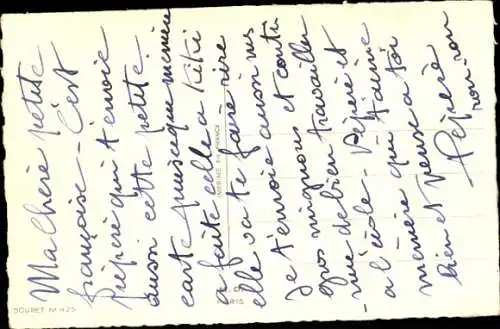 Ma chère petite
françoise - C'est
pépère qui t'envoie
aussi cette petite
carte puisque mémère
a faite celle a Kiki
elle va te faire rire
je t'envoie aussi mes
gros mignons et conti-
nue de bien travailler
a l'école - Pépère et
mémère qui t'aime
bien et pense a toi
Pépère
ron-ron
IMPRIMÉ EN FRANCE
PARIS
BOURET Nº 425